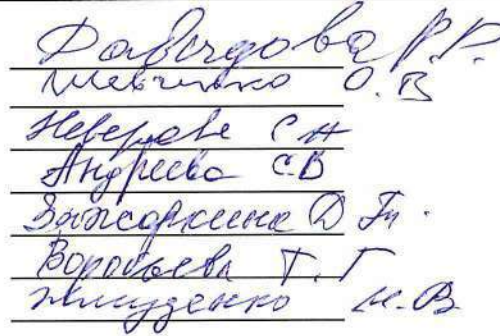 Давыдова Р.Р.
Шевченко О.В
Неверова С А
Андреева С.В
Зажаркина Д Гр.
Воробьева Т.Г
Жмуденко М.В.